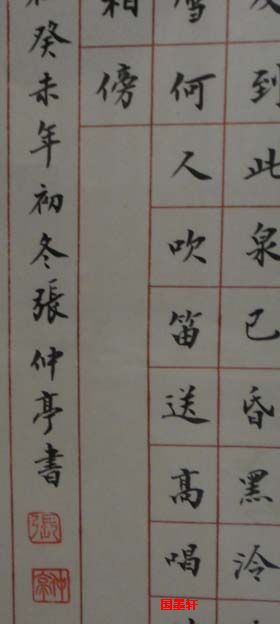 到此泉已昏黑泠
何人吹笛送高唱
傍
癸未年初冬張仲亭書
張
仲亭
国墨轩